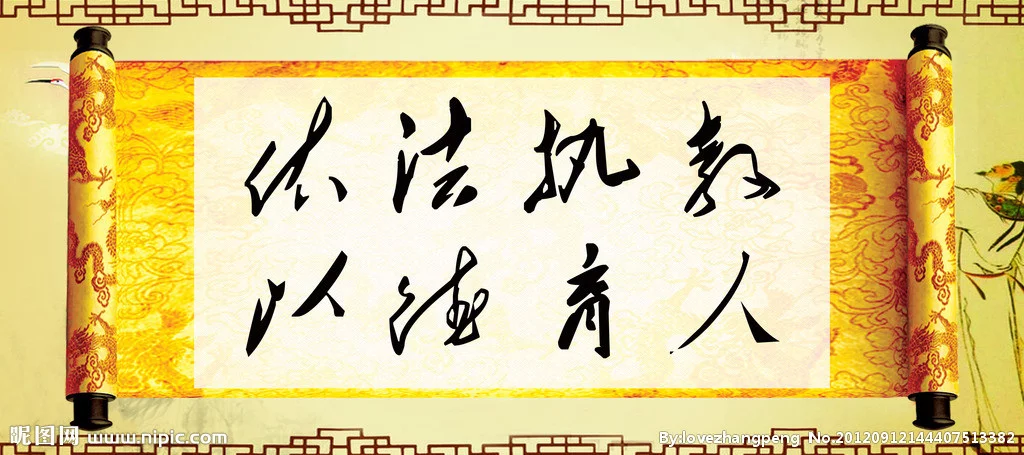 依法执教
以德育人
昵图网 www.nipic.com
By:lovezhangpeng No.20120912144407513382